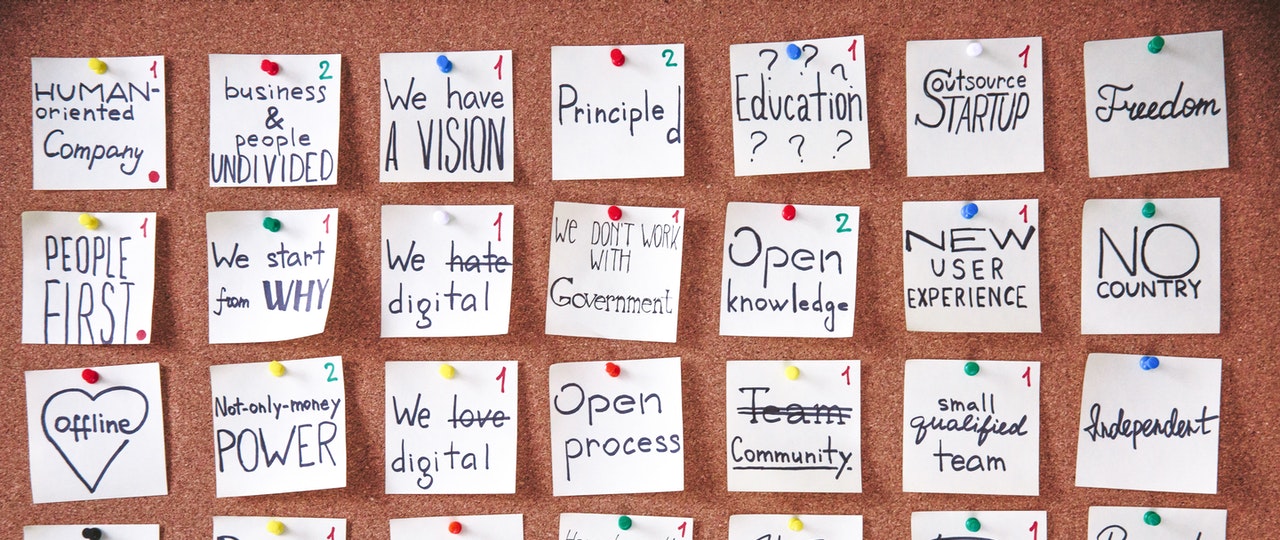 1
HUMAN-
oriented
Company
2
business
&
people
UNDIVIDED
1
We have
A VISION
2
Principled
1
? ? ?
Education
? ? ?
1
Outsource
STARTUP
Freedom
1
PEOPLE
FIRST
1
We start
from WHY
1
We hate
digital
1
We DON'T WORK
WITH
Government
2
Open
knowledge
1
NEW
USER
EXPERIENCE
NO
COUNTRY
offline
2
Not-only-money
POWER
1
We love
digital
Open
process
1
Team
Community
1
small
qualified
team
Independent
1
1